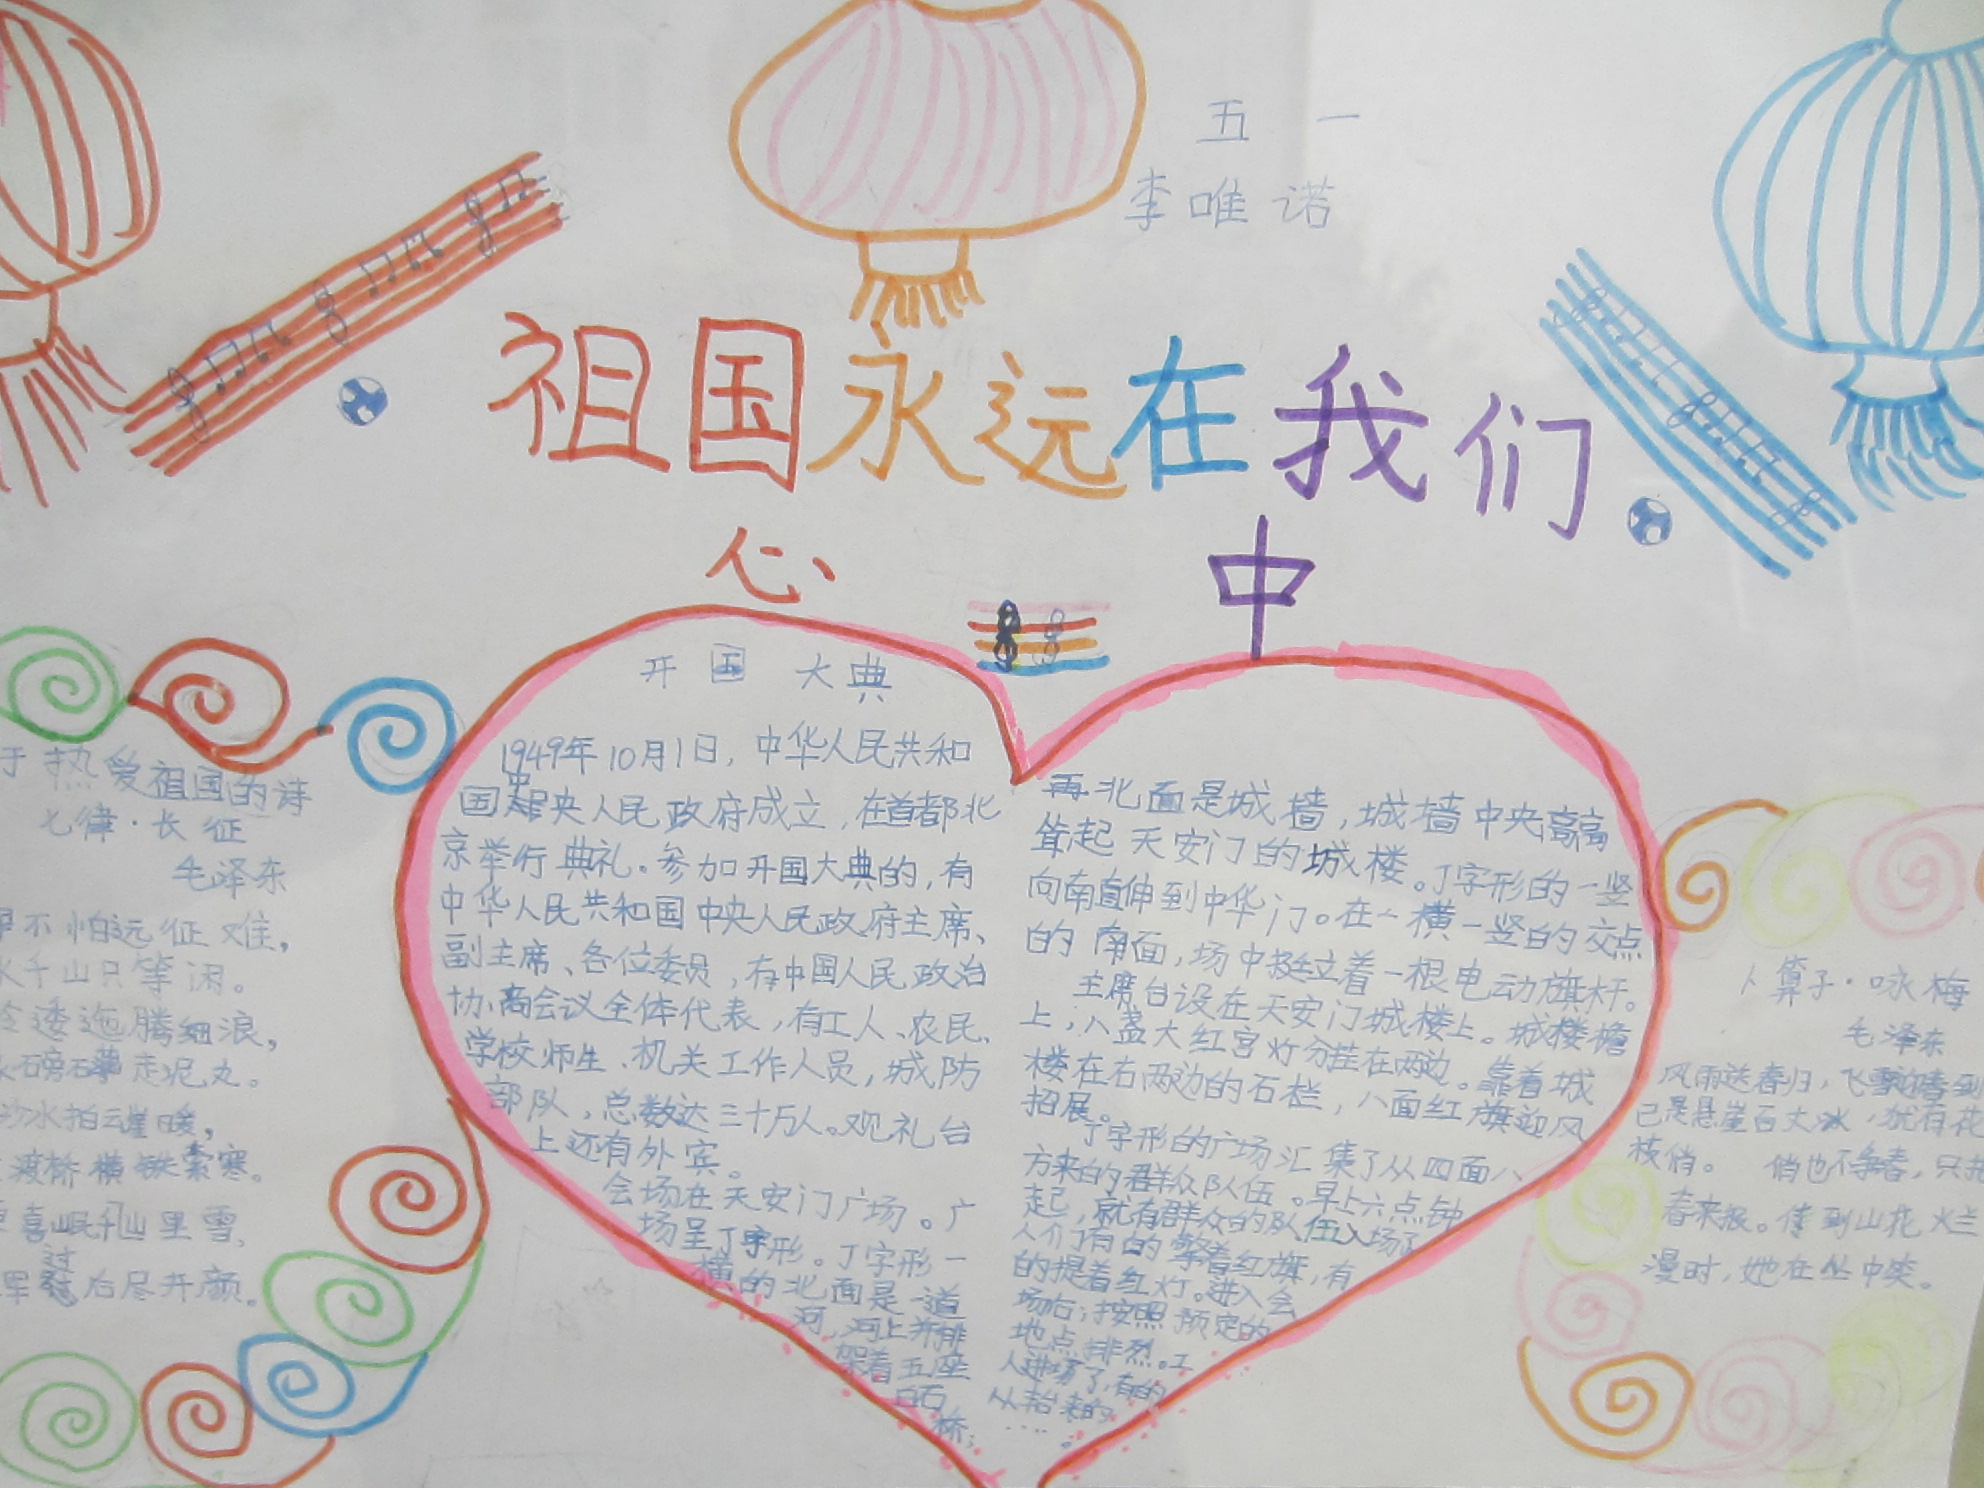 五 一
李唯诺
祖国永远在我们
心 中
开国大典
1949年10月1日，中华人民共和
国中央人民政府成立，在首都北
京举行典礼。参加开国大典的，有
中华人民共和国中央人民政府主席、
副主席、各位委员，有中国人民政治
协商会议全体代表，有工人、农民、
学校师生、机关工作人员，城防
部队，总数达三十万人。观礼台
上还有外宾。
会场在天安门广场。广
场呈丁字形。丁字形一
横的北面是一道
河，河上并排
架着五座
白石
桥；
再北面是城墙，城墙中央高高
耸起天安门的城楼。丁字形的一竖
向南直伸到中华门。在一横一竖的交点
的南面，场中挺立着一根电动旗杆。
主席台设在天安门城楼上。城楼檐
上，八盏大红宫灯分挂在两边。靠着城
楼在右两边的石栏，八面红旗迎风
招展。
丁字形的广场汇集了从四面八
方来的群众队伍。早上六点钟
起，就有群众的队伍入场了
人们有的擎着红旗，有
的提着红灯。进入会
场后，按照预定的
地点排烈。工
人进场了，有的
从抬来的
……。
于热爱祖国的诗
七律·长征
毛泽东
不怕远征难，
水千山只等闲。
逶迤腾细浪，
磅礴走泥丸。
沙水拍云崖暖，
渡桥横铁索寒。
喜岷山里雪，
军过后尽开颜。
卜算子·咏梅
毛泽东
风雨送春归，飞雪迎春到
已是悬崖百丈冰，犹有花
枝俏。 俏也不争春，只把
春来报。待到山花烂
漫时，她在丛中笑。